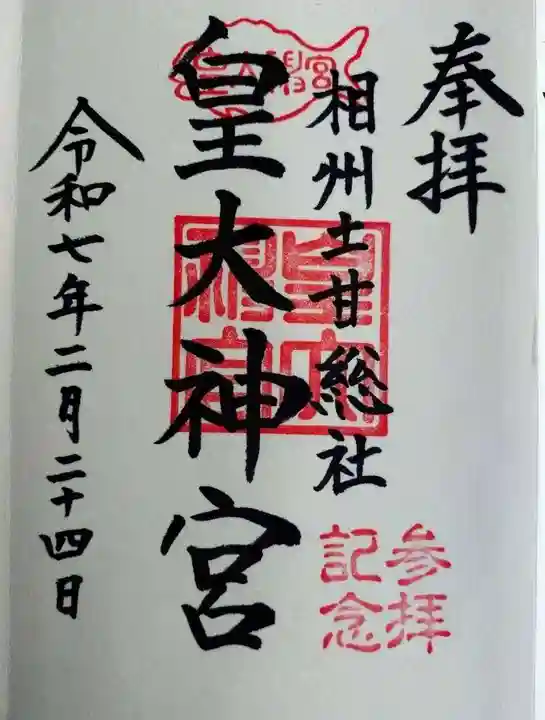 奉拝
相州土甘総社
皇大神宮
令和七年二月二十四日
皇大
神宮
参拝
記念